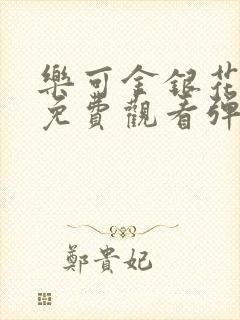 樂可金銀花
免費觀看彈
鄭貴妃